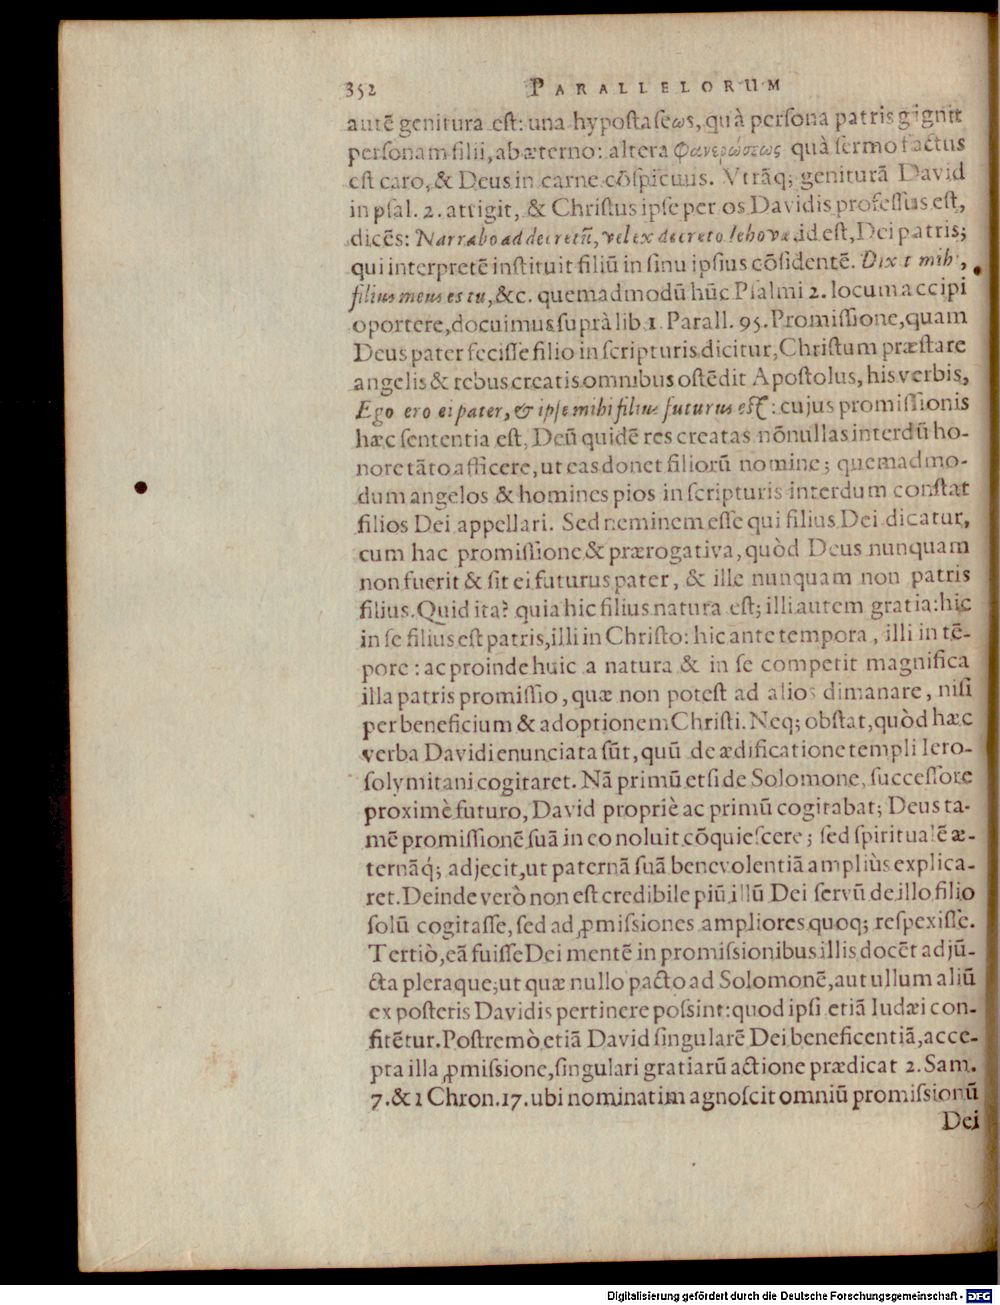 352 PARALLELORUM
autē genitura est: una hypostaseως, quà persona patris gignit
personam filii, ab æterno: altera Φανερώσεως quà sermo factus
est caro, & Deus in carne cōspicuus. Vtrāq; geniturā David
in psal. 2. attigit, & Christus ipse per os Davidis professus est,
dicēs: Narrabo ad decretū, vel ex decreto Iehovæ id est, Dei patris;
qui interpretē instituit filiū in sinu ipsius cōsidentē. Dixit mihi,
filius meus es tu, &c. quemadmodū hūc Psalmi 2. locum accipi
oportere, docuimus suprà lib. 1. Parall. 95. Promissione, quam
Deus pater fecisse filio in scripturis dicitur, Christum præstare
angelis & rebus creatis omnibus ostēdit Apostolus, his verbis,
Ego ero ei pater, & ipse mihi filius futurus est: cujus promissionis
hæc sententia est, Deū quidē res creatas nōnullas interdū ho-
nore tāto afficere, ut eas donet filiorū nomine; quemadmo-
dum angelos & homines pios in scripturis interdum constat
filios Dei appellari. Sed neminem esse qui filius Dei dicatur,
cum hac promissione & prærogativa, quòd Deus nunquam
non fuerit & sit ei futurus pater, & ille nunquam non patris
filius. Quid ita? quia hic filius natura est; illi autem gratia: hic
in se filius est patris, illi in Christo: hic ante tempora, illi in tē-
pore: ac proinde huic a natura & in se competit magnifica
illa patris promissio, quæ non potest ad alios dimanare, nisi
per beneficium & adoptionem Christi. Neq; obstat, quòd hæc
verba Davidi enunciata sūt, quū de ædificatione templi Iero-
solymitani cogitaret. Nā primū etsi de Solomone, successore
proximè futuro, David propriè ac primū cogitabat; Deus ta-
mē promissionē suā in eo noluit cōquiescere; sed spiritualē æ-
ternāq́; adjecit, ut paternā suā benevolentiā ampliùs explica-
ret. Deinde verò non est credibile piū illū Dei servū de illo filio
solū cogitasse, sed ad ꝓmissiones ampliores quoq; respexisse.
Tertiò, eā fuisse Dei mentē in promissionibus illis docēt adjū-
cta pleraque; ut quæ nullo pacto ad Solomonē, aut ullum aliū
ex posteris Davidis pertinere possint: quod ipsi etiā Iudæi con-
fitētur. Postremò etiā David singularē Dei beneficentiā, acce-
pta illa ꝓmissione, singulari gratiarū actione prædicat 2. Sam.
7. & 1 Chron. 17. ubi nominatim agnoscit omniū promissionū
Dei
Digitalisierung gefördert durch die Deutsche Forschungsgemeinschaft - DFG